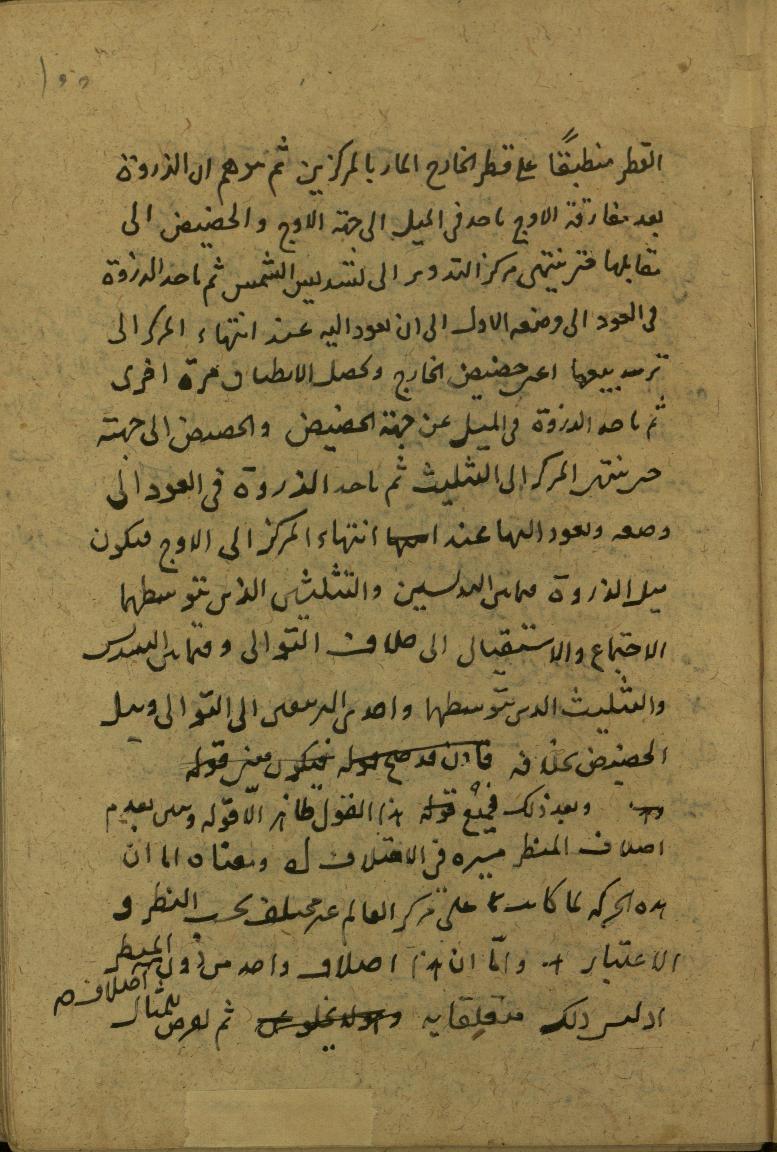 ١٠٠
القطر منطبقًا على قطر الخارج المار بالمركزين ثم نتوهم ان الذروة
بعد مفارقة الاوج ياخذ فى الميل الى جهة الاوج والحضيض الى
مقابلها حتى ينتهى مركز التدوير الى تسديس الشمس ثم ياخذ الذروة
فى العود الى وضعه الاول الى ان يعود اليه عند انتهاء المركز الى
تربيعها اعنى حضيض الخارج ويحصل الانطباق مرة اخرى
ثم ياخذ الذروة فى الميل عن جهة الحضيض والحضيض الى جهته
حتى ينتهى المركز الى التثليث ثم ياخذ الذروة فى العود الى
وضعه ويعود اليها عند انتهاء المركز الى الاوج فيكون
ميل الذروة فيما بين التسديسين والتثليثين الذين تتوسطهما
الاجتماع والاستقبال الى خلاف التوالى وفيما بين التسديس
والتثليث الذين يتوسطهما واحد من التربيعين الى التوالى وميل
الحضيض بخلافه فاذن قد صح قوله فيكون معنى قوله
وبعد ذلك فجميع قوله هذا القول ظاهر الا قوله وليس بعدم
اختلاف المنظر ميزه فى الاختلاف له ومعناه اما ان
هذه الحركة لما كانت على مركز العالم غير مختلف بحسب النظر و
الاعتبار واما ان هذا اختلاف واحد من ذون المنظر
اذ ليس ذلك متعلقا به ثم لغرض للمثال اختلاف